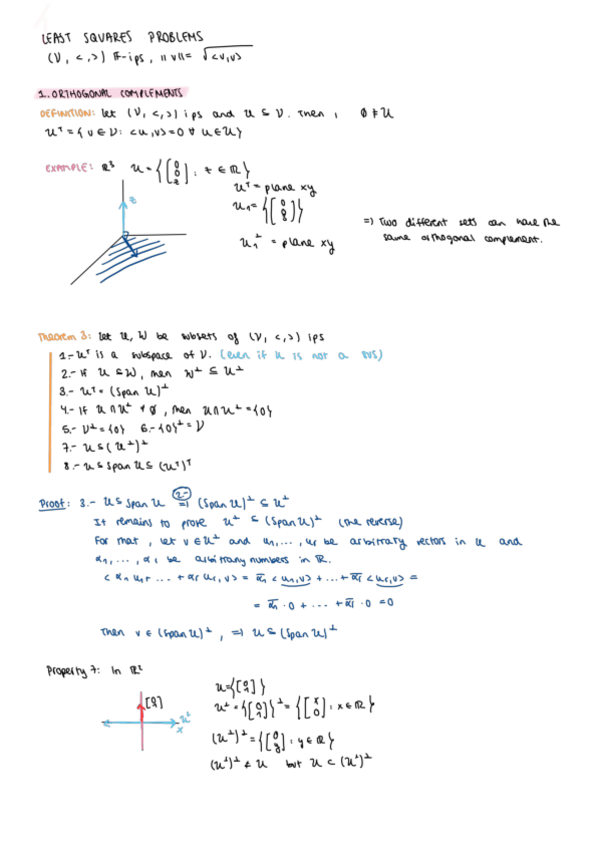 LEAST SQUARES PROBLEMS
(V, <,>) F-ips, ||v|| = √<v,v>
1. ORTHOGONAL COMPLEMENTS
DEFINITION: let (V, <,>) ips and U ⊆ V. Then, ∅ ≠ U
Uᵀ = { v ∈ V: <u,v> = 0 ∀ u ∈ U}
EXAMPLE: ℝ³ U = {[0 0 z] : z ∈ ℝ}
Uᵀ = plane xy
U₁ =
U₁^⊥ = plane xy
=) Two different sets can have the
same orthogonal complement.
z
Theorem 3: let U, W be subsets of (V, <,>) ips
1.- Uᵀ is a subspace of V. (even if U is not a SVS)
2.- If U ⊆ W, then W^⊥ ⊆ U^⊥
3.- Uᵀ = (Span U)^⊥
4.- If U ∩ U^⊥ ≠ ∅, then U ∩ U^⊥ = {0}
5.- V^⊥ = {0} 6.- {0}^⊥ = V
7.- U ⊆ (U^⊥)^⊥
8.- U ⊆ Span U ⊆ (Uᵀ)ᵀ
Proof: 3.- U ⊆ Span U =2.-=) (Span U)^⊥ ⊆ U^⊥
It remains to prove U^⊥ ⊆ (Span U)^⊥ (the reverse)
For that, let v ∈ U^⊥ and u₁, ..., ur be arbitrary vectors in U and
α₁, ..., αr be arbitrary numbers in ℝ.
<α₁u₁ + ... + αr ur, v> = ᾱ₁ <u₁,v> + ... + ᾱr <ur,v> =
= ᾱ₁ · 0 + ... + ᾱr · 0 = 0
Then v ∈ (Span U)^⊥, =) U ⊆ (Span U)^⊥
Property 7: In ℝ²
U = {[0 1]}
U^⊥ = {[0 1]}^⊥ = {[x 0] : x ∈ ℝ}
(U^⊥)^⊥ = {[0 y] : y ∈ ℝ}
(U^⊥)^⊥ ≠ U but U ⊂ (U^⊥)^⊥
U^⊥
x